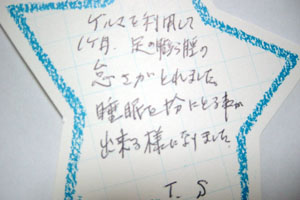 ゲルマを利用して
1ヶ月、足の膨ら脛の
怠さがとれました
睡眠を十分にとる事が
出来る様になりました。
T. S